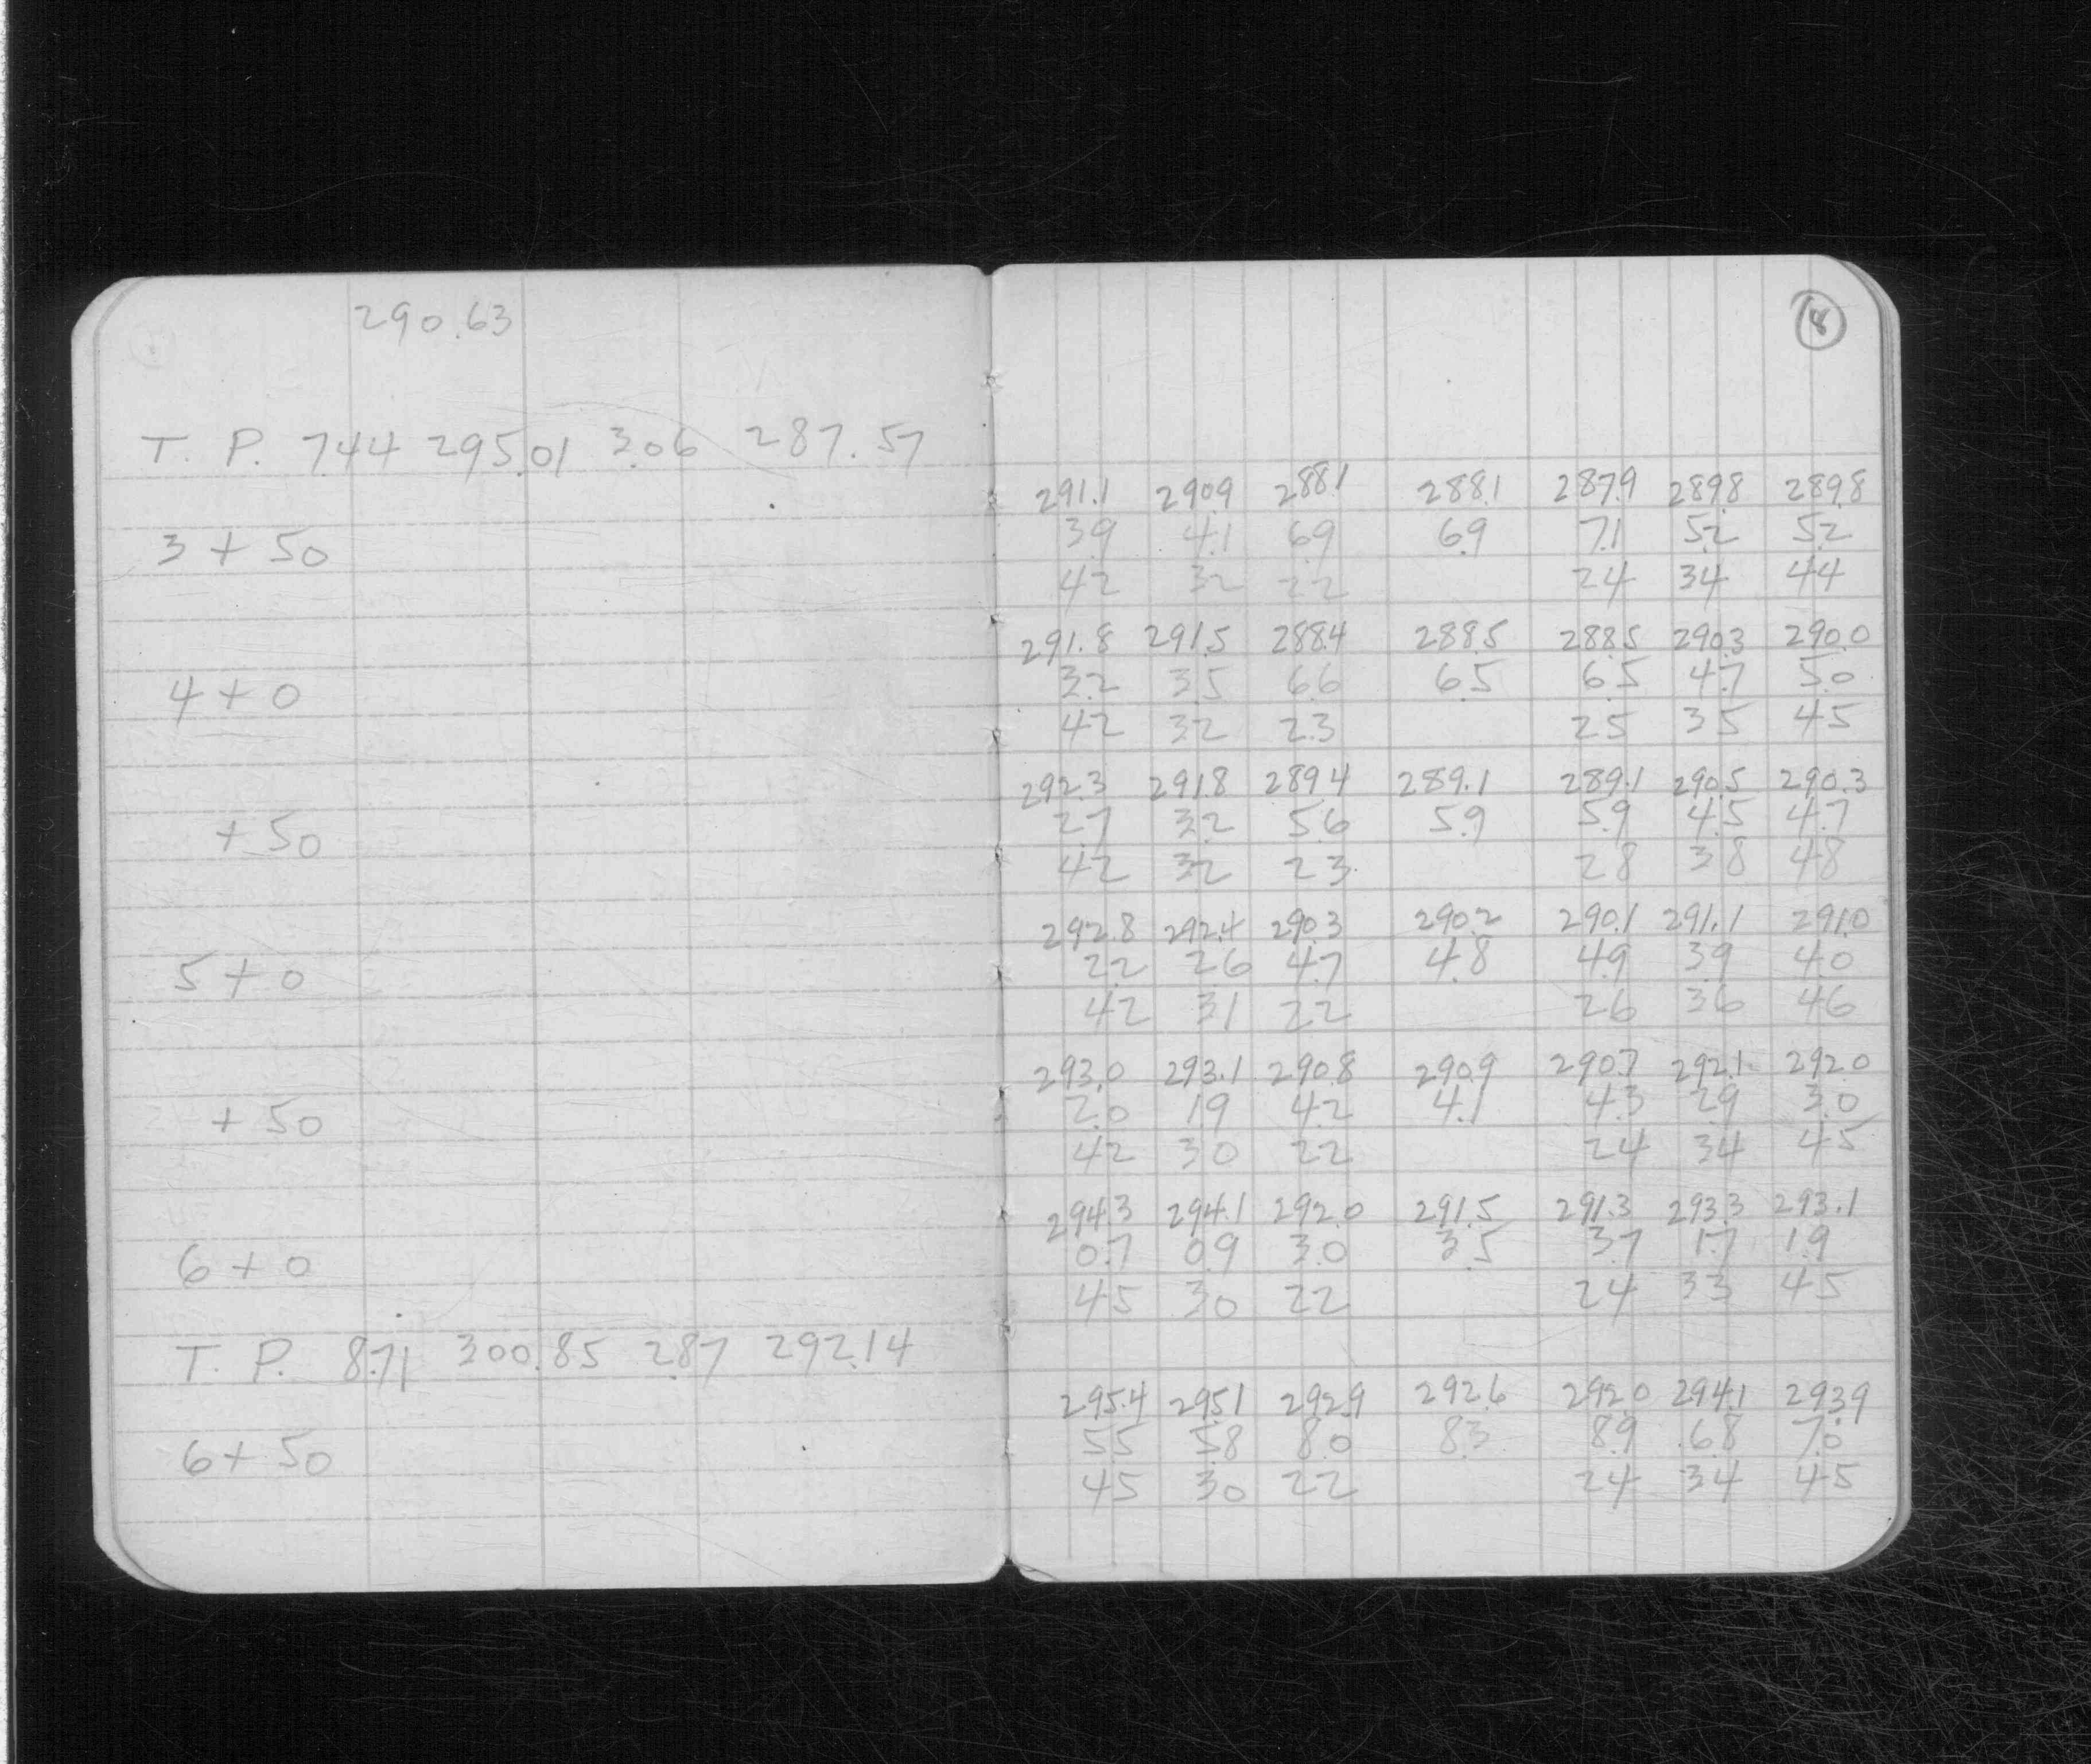 290.63
T. P. 7.44 295.01 3.06 287.57
3 + 50
4 + 0
+ 50
5 + 0
+ 50
6 + 0
T. P. 8.71 300.85 2.87 292.14
6 + 50
18
291.1 290.9 288.1 288.1 287.9 289.8 289.8
3.9 4.1 6.9 6.9 7.1 5.2 5.2
42 32 22 24 34 44
291.8 291.5 288.4 288.5 288.5 290.3 290.0
3.2 3.5 6.6 6.5 6.5 4.7 5.0
42 32 23 25 35 45
292.3 291.8 289.4 289.1 289.1 290.5 290.3
2.7 3.2 5.6 5.9 5.9 4.5 4.7
42 32 23 28 38 48
292.8 292.4 290.3 290.2 290.1 291.1 291.0
2.2 2.6 4.7 4.8 4.9 3.9 4.0
42 31 22 26 36 46
293.0 293.1 290.8 290.9 290.7 292.1 292.0
2.0 1.9 4.2 4.1 4.3 2.9 3.0
42 30 22 24 34 45
294.3 294.1 292.0 291.5 291.3 293.3 293.1
0.7 0.9 3.0 3.5 3.7 1.7 1.9
45 30 22 24 33 45
295.4 295.1 292.9 292.6 292.0 294.1 293.9
5.5 5.8 8.0 8.3 8.9 6.8 7.0
45 30 22 24 34 45